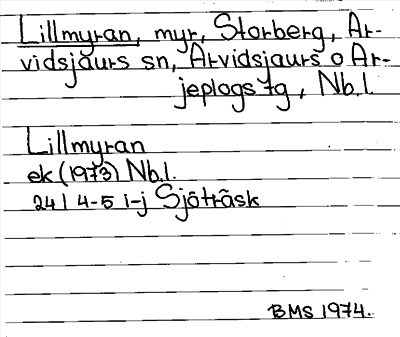 Lillmyran, myr, Storberg, Ar-
vidsjaurs sn, Arvidsjaurs o Ar-
jeplogs tg, Nb.l.
Lillmyran
ek (1973) Nb.l.
24 I 4-5 i-j Sjöträsk
BMS 1974.